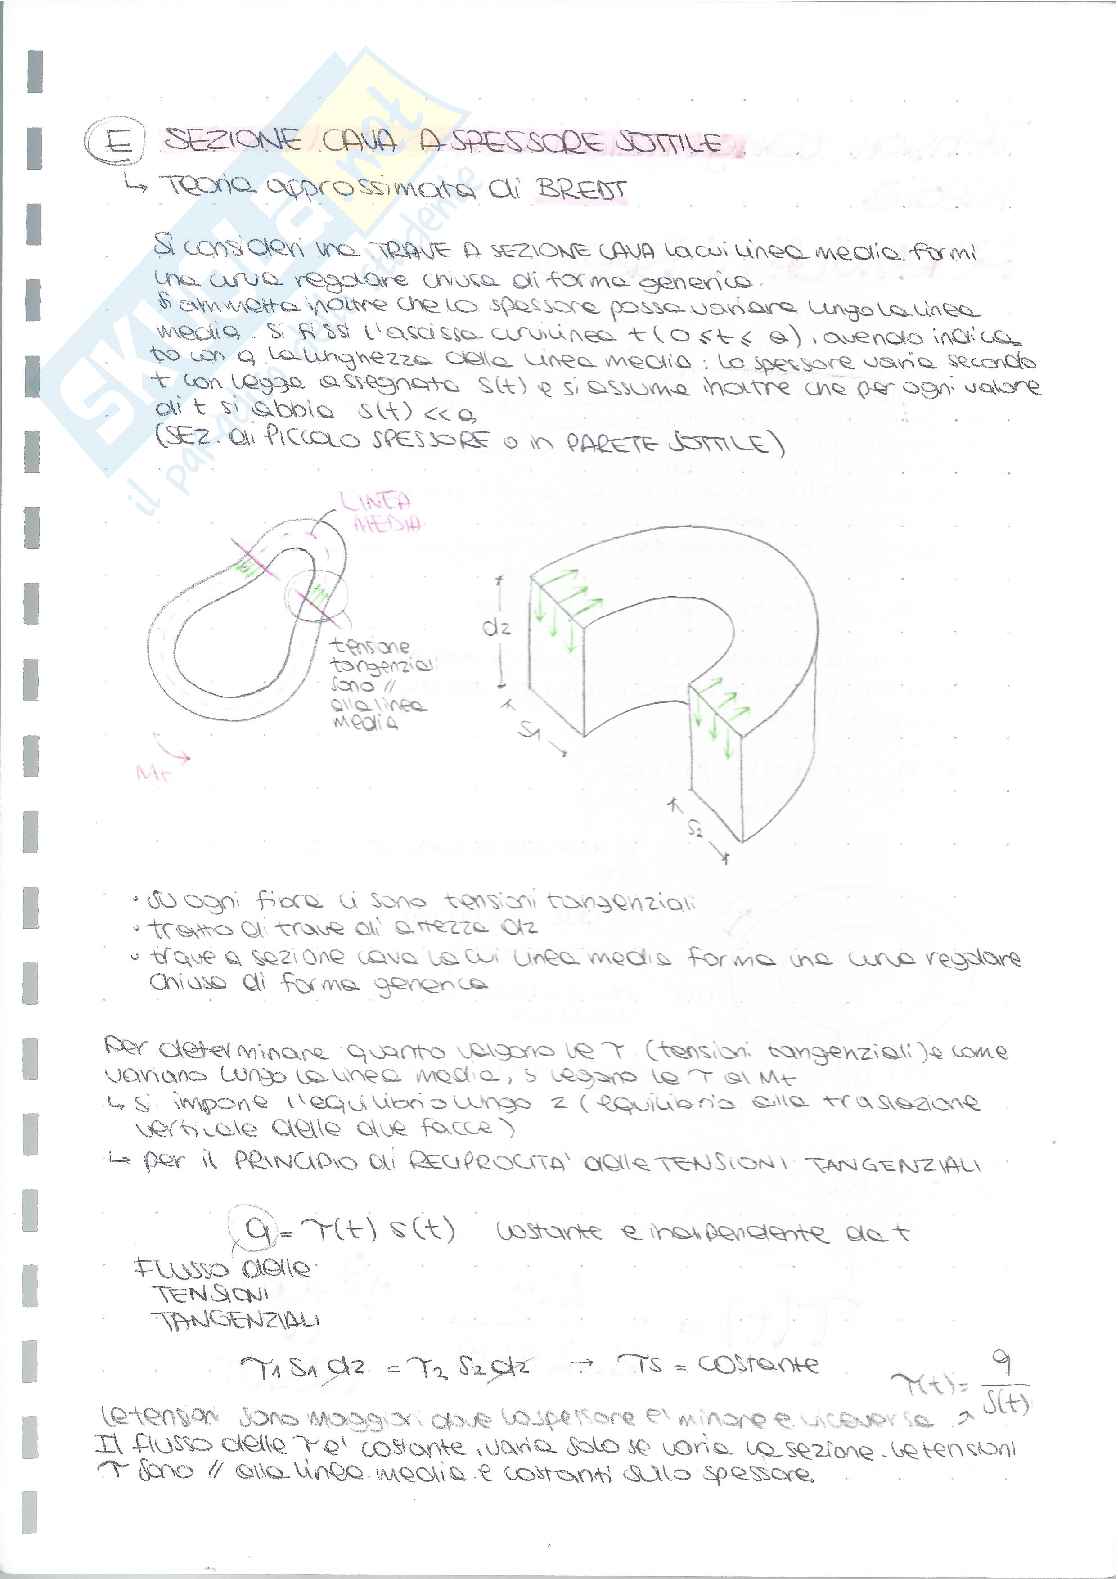 E SEZIONE CAVA A SPESSORE SOTTILE
↳ Teoria approssimata di BREDT
Si consideri una TRAVE A SEZIONE CAVA la cui linea media formi
una curva regolare chiusa di forma generica.
Si ammetta inoltre che lo spessore possa variare lungo la linea
media. Si fissi l'ascissa curvilinea t (0 ≤ t ≤ a), avendo indica
to con a la lunghezza della linea media: lo spessore varia secondo
t con legge assegnata s(t) e si assume inoltre che per ogni valore
di t si abbia s(t) << a
(SEZ. di PICCOLO SPESSORE o in PARETE SOTTILE)
LINEA
MEDIA
tensione
tangenziali
sono //
alla linea
media
Mt
dz
S1
S2
• su ogni fibra ci sono tensioni tangenziali
• tratto di trave di altezza dz
• trave a sezione cava la cui linea media forma una curva regolare
chiusa di forma generica
Per determinare quanto valgono le τ (tensioni tangenziali) e come
variano lungo la linea media, si legano le τ al Mt
↳ si impone l'equilibrio lungo z (equilibrio alla traslazione
verticale delle due facce)
↳ per il PRINCIPIO di RECIPROCITA' delle TENSIONI TANGENZIALI
q = τ(t) s(t) costante e indipendente da t
FLUSSO delle
TENSIONI
TANGENZIALI
τ1 S1 dz = τ2 S2 dz → τs = costante
τ(t) = q / S(t)
Le tensioni sono maggiori dove lo spessore e' minore e viceversa
Il flusso delle τ e' costante, varia solo se varia la sezione. Le tensioni
τ sono // alla linea media e costanti sullo spessore.
SKUOLA.net